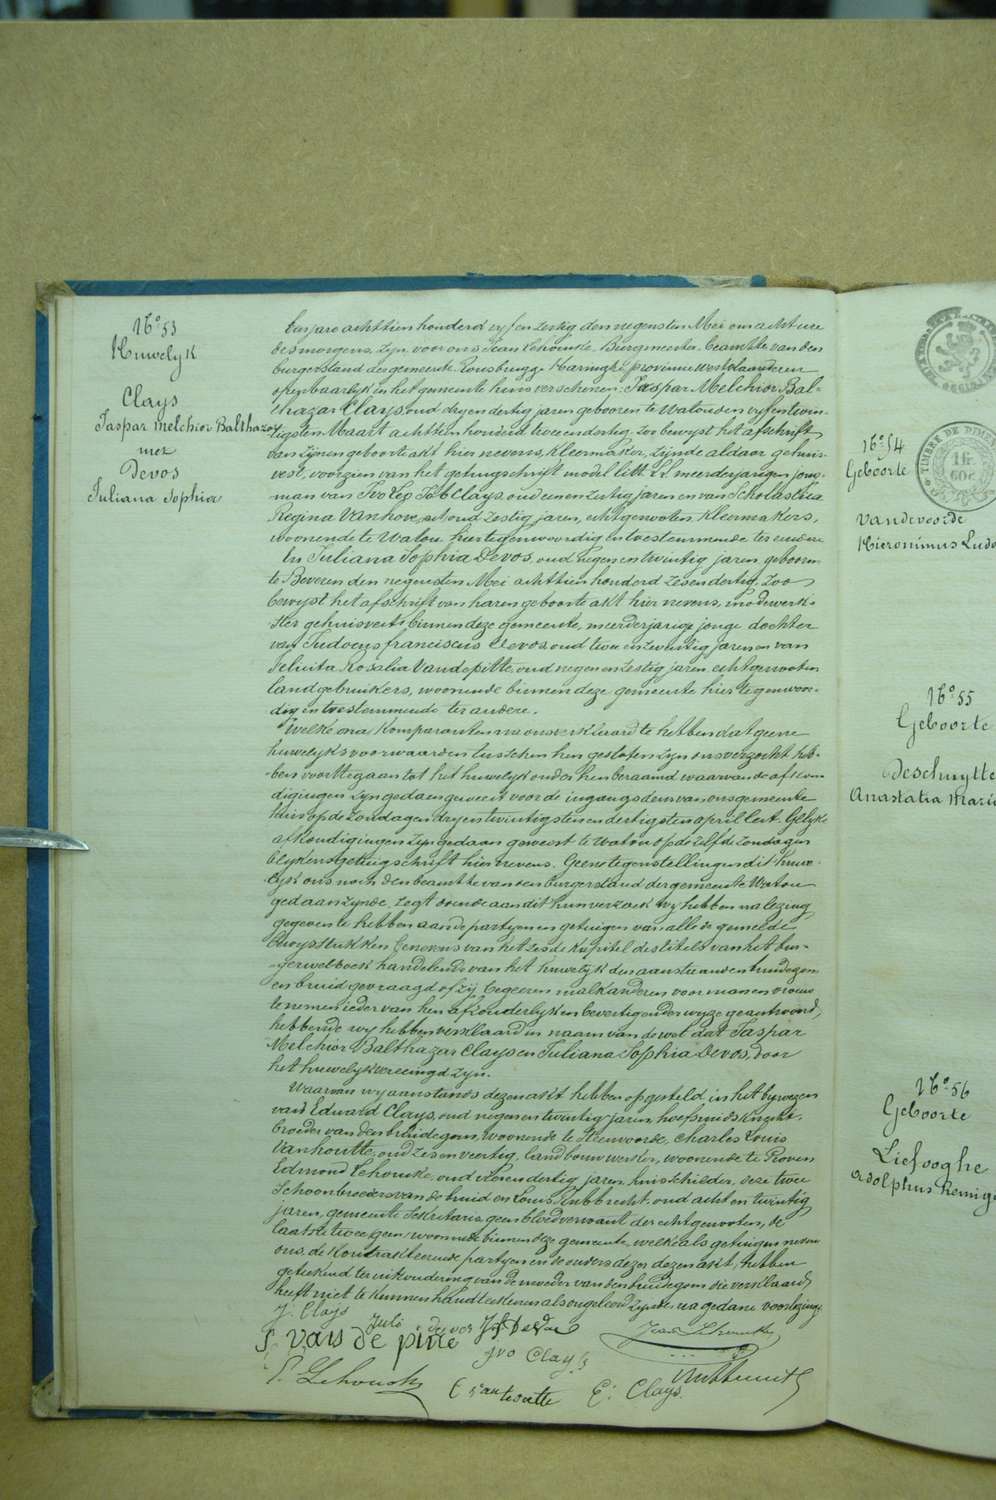 No 53
Huwelyk
Clays
Jaspar Melchior Balthazar
met
Devos
Juliana Sophia
Een jare achttien honderd vyf en zestig den negensten Mei om acht ure
des morgens, zyn voor ons Jean Lehoucke Burgmeester beambte van den
burgerstand der gemeente Rousbrugge Haringhe provincie westvlaanderen
openbaarlyk in het gemeente huis verschenen: Jaspar Melchior Bal-
thazar Clays, oud dryendertig jaren gebooren te Watou den vyfentwin-
tigsten Maart achttien honderd tweeendertig, zoo bewyst het afschrift
van zynen geboorteakt hier nevens, kleermaker, zynde aldaar gehuis-
vest, voorzien van het getuigschrift model litt. meerderjarigen jong-
man van Ivo Leo Job Clays, oud eenenzestig jaren en van Scholastica
Regina Vanhove, oud zestig jaren, echtgenooten kleermakers,
woonende te Watou hier tegenwoordig en toestemmende ter eenere
En Juliana Sophia Devos, oud negenentwintig jaren gebooren
te Beveren den negensten Mei achttien honderd zesendertig, zoo
bewyst het afschrift van haren geboorte akt hier nevens, modewerk-
ster gehuisvest binnen deze gemeente, meerderjarige jonge dochter
van franciscus Devos oud jaren en van
Felicita Rosalia Vandepitte oud negenenzestig jaren, echtgenooten
landgebruikers, woonende binnen deze gemeente hier tegenwoor-
dig en toestemmende ter andere.
Welke Komparanten na ons verklaard te hebben dat geene
huwelyksvoorwaarden tusschen hen gesloten zyn ons verzocht heb-
ben voorttegaan tot het huwelyk onder hen beraamd, waarvan de afkon-
digingen zyn gedaan geweest voor de ingangsdeur van ons gemeente
huis op de zondagen dryentwintigsten en dertigsten april lest. Gelyke
afkondigingen zyn gedaan geweest te Watou op de zelfde zondagen
blykens getuigschrift hier nevens. Geene tegenstellingen dit huwe-
lyk ons noch den beambte van den burgerstand der gemeente Watou
gedaan zynde, regt doende aan dit hun verzoek wy hebben na lezing
gegeven te hebben aan de partyen en getuigen van alle de gemelde
bewysstukken benevens van het zesde kapittel des titels van het bur-
gerwetboek handelende van het huwelyk den aanstaanden bruidegom
en bruid gevraagd of zy begeeren malkanderen voor man en vrouw
te nemen ieder van hen afzonderlyk en bevestigender wyze geantwoord
hebbende wy hebben verklaard in naam van de wet dat Jaspar
Melchior Balthazar Clays en Juliana Sophia Devos, door
het huwelyk vereenigd zyn.
Waarvan wy aanstonds dezen akt hebben opgesteld, in het bywezen
van Eduard Clays, oud negenentwintig jaren hoefsmids knecht,
broeder van den bruidegom, woonende te Steenvoorde, Charles Louis
Vanhoutte, oud zesenveertig, landbouwwerker, woonende te Proven
Edmond Lehoucke, oud dertig jaren, huisschilder, deze twee
Schoonbroeders van de bruid en Louis Rubbrecht, oud achtentwintig
jaren, gemeente Sekretaris geen bloedverwant der echtgenooten, de
laatste twee woonende binnen deze gemeente, welke als getuigen neven
ons, de Kontrakteerende partyen en de ouders dezer dezen akt, hebben
geteekend ter uitzondering van de moeder van den bruidegom die verklaard
heeft niet te kunnen handteekenen als ongeleerd zynde na gedane voorlezing.
J. Clays
Juli devos
Ivo Clays
E. Clays
No 54
Geboorte
Vandevoorde
Hieronimus Ludo
TIMBRE DE DIMEN
No 55
Geboorte
Deschuytte
Anastasia Marie
No 56
Geboorte
Liefooghe
Adolphus Remigi